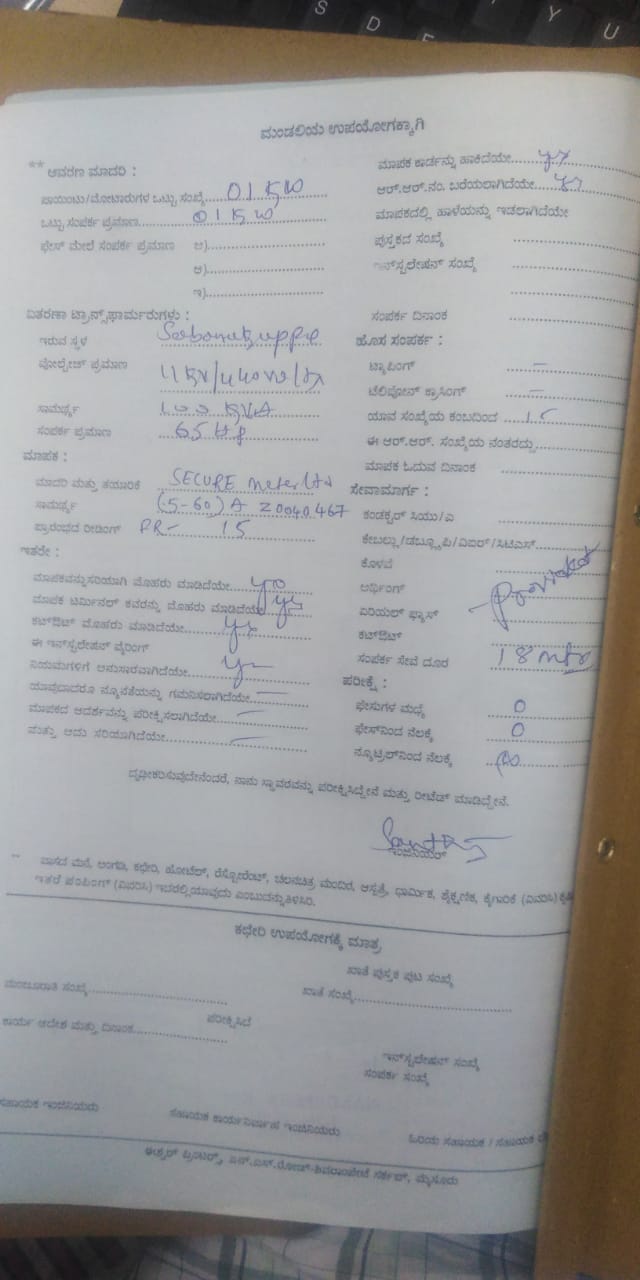 ಮಂಡಲಿಯ ಉಪಯೋಗಕ್ಕಾಗಿ
** ಆವರಣ ಮಾದರಿ :
ಪಾಯಿಂಟು/ಮೋಟಾರುಗಳ ಒಟ್ಟು ಸಂಖ್ಯೆ 01 KW
ಒಟ್ಟು ಸಂಪರ್ಕ ಪ್ರಮಾಣ 01 KW
ಫೇಸ್ ಮೇಲೆ ಸಂಪರ್ಕ ಪ್ರಮಾಣ ಅ)
ಆ)
ಇ)
ವಿತರಣಾ ಟ್ರಾನ್ಸ್‌ಫಾರ್ಮರುಗಳು :
ಇರುವ ಸ್ಥಳ
ವೋಲ್ಟೇಜ್ ಪ್ರಮಾಣ
ಸಾಮರ್ಥ್ಯ 100 KVA
ಸಂಪರ್ಕ ಪ್ರಮಾಣ 65 HP
ಮಾಪಕ :
ಮಾದರಿ ಮತ್ತು ತಯಾರಿಕೆ SECURE Meter Ltd
ಸಾಮರ್ಥ್ಯ (5-60) A 20040467
ಪ್ರಾರಂಭದ ರೀಡಿಂಗ್ PR- 15
ಇತರೇ :
ಮಾಪಕವನ್ನು ಸರಿಯಾಗಿ ಮೊಹರು ಮಾಡಿದೆಯೇ
ಮಾಪಕ ಟರ್ಮಿನಲ್ ಕವರನ್ನು ಮೊಹರು ಮಾಡಿದೆಯೇ yes
ಕಟ್‌ಔಟ್ ಮೊಹರು ಮಾಡಿದೆಯೇ yes
ಈ ಇನ್‌ಸ್ಟಲೇಷನ್ ವೈರಿಂಗ್
ನಿಯಮಗಳಿಗೆ ಅನುಸಾರವಾಗಿದೆಯೇ
ಯಾವುದಾದರೂ ನ್ಯೂನತೆಯನ್ನು ಗಮನಿಸಲಾಗಿದೆಯೇ —
ಮಾಪಕದ ಆದರ್ಶವನ್ನು ಪರೀಕ್ಷಿಸಲಾಗಿದೆಯೇ —
ಮತ್ತು ಅದು ಸರಿಯಾಗಿದೆಯೇ —
ಮಾಪಕ ಕಾರ್ಡನ್ನು ಹಾಕಿದೆಯೇ
ಆರ್.ಆರ್.ನಂ. ಬರೆಯಲಾಗಿದೆಯೇ
ಮಾಪಕದಲ್ಲಿ ಹಾಳೆಯನ್ನು ಇಡಲಾಗಿದೆಯೇ
ಪುಸ್ತಕದ ಸಂಖ್ಯೆ
ಇನ್‌ಸ್ಟಲೇಷನ್ ಸಂಖ್ಯೆ
ಸಂಪರ್ಕ ದಿನಾಂಕ
ಹೊಸ ಸಂಪರ್ಕ :
ಟ್ಯಾಪಿಂಗ್ —
ಟೆಲಿಫೋನ್ ಕ್ರಾಸಿಂಗ್ —
ಯಾವ ಸಂಖ್ಯೆಯ ಕಂಬದಿಂದ
ಈ ಆರ್.ಆರ್. ಸಂಖ್ಯೆಯ ನಂತರದ್ದು
ಮಾಪಕ ಓದುವ ದಿನಾಂಕ
ಸೇವಾಮಾರ್ಗ :
ಕಂಡಕ್ಟರ್ ಸಿಯು/ಎ
ಕೇಬಲ್ಲು/ಡಬ್ಲ್ಯೂಪಿ/ವಿಐಆರ್/ಸಿಟಿಎಸ್
ಕೊಳವೆ
ಅರ್ಥಿಂಗ್
ಏರಿಯಲ್ ಫ್ಯೂಸ್ Provided
ಕಟ್‌ಔಟ್
ಸಂಪರ್ಕ ಸೇವೆ ದೂರ 18 mtr
ಪರೀಕ್ಷೆ :
ಫೇಸುಗಳ ಮಧ್ಯೆ 0
ಫೇಸ್‌ನಿಂದ ನೆಲಕ್ಕೆ 0
ನ್ಯೂಟ್ರಲ್‌ನಿಂದ ನೆಲಕ್ಕೆ
ದೃಢೀಕರಿಸುವುದೇನೆಂದರೆ, ನಾನು ಸ್ಥಾವರವನ್ನು ಪರೀಕ್ಷಿಸಿದ್ದೇನೆ ಮತ್ತು ರೀಟೆಡ್ ಮಾಡಿದ್ದೇನೆ.
ಇಂಜಿನಿಯರ್
** ವಾಸದ ಮನೆ, ಅಂಗಡಿ, ಕಛೇರಿ, ಹೋಟೆಲ್, ರೆಸ್ಟೋರೆಂಟ್, ಚಲನಚಿತ್ರ ಮಂದಿರ, ಆಸ್ಪತ್ರೆ, ಧಾರ್ಮಿಕ, ಶೈಕ್ಷಣಿಕ, ಕೈಗಾರಿಕೆ (ವಿವರಿಸಿ)
ಇತರೆ ಪಂಪಿಂಗ್ (ವಿವರಿಸಿ) ಇವರಲ್ಲಿ ಯಾವುದು ಎಂಬುದನ್ನು ತಿಳಿಸಿರಿ.
ಕಛೇರಿ ಉಪಯೋಗಕ್ಕೆ ಮಾತ್ರ
ಖಾತೆ ಪುಸ್ತಕ ಪುಟ ಸಂಖ್ಯೆ
ಮಂಜೂರಾತಿ ಸಂಖ್ಯೆ ಖಾತೆ ಸಂಖ್ಯೆ
ಪರೀಕ್ಷಿಸಿದೆ
ಕಾರ್ಯ ಆದೇಶ ಮತ್ತು ದಿನಾಂಕ
ಇನ್‌ಸ್ಟಲೇಷನ್ ಸಂಖ್ಯೆ
ಸಂಪರ್ಕ ಸಂಖ್ಯೆ
ಸಹಾಯಕ ಇಂಜಿನಿಯರು ಸಹಾಯಕ ಕಾರ್ಯನಿರ್ವಾಹಕ ಇಂಜಿನಿಯರು ಹಿರಿಯ ಸಹಾಯಕ / ಸಹಾಯಕ
ಮೈಸೂರು
S D F Y U